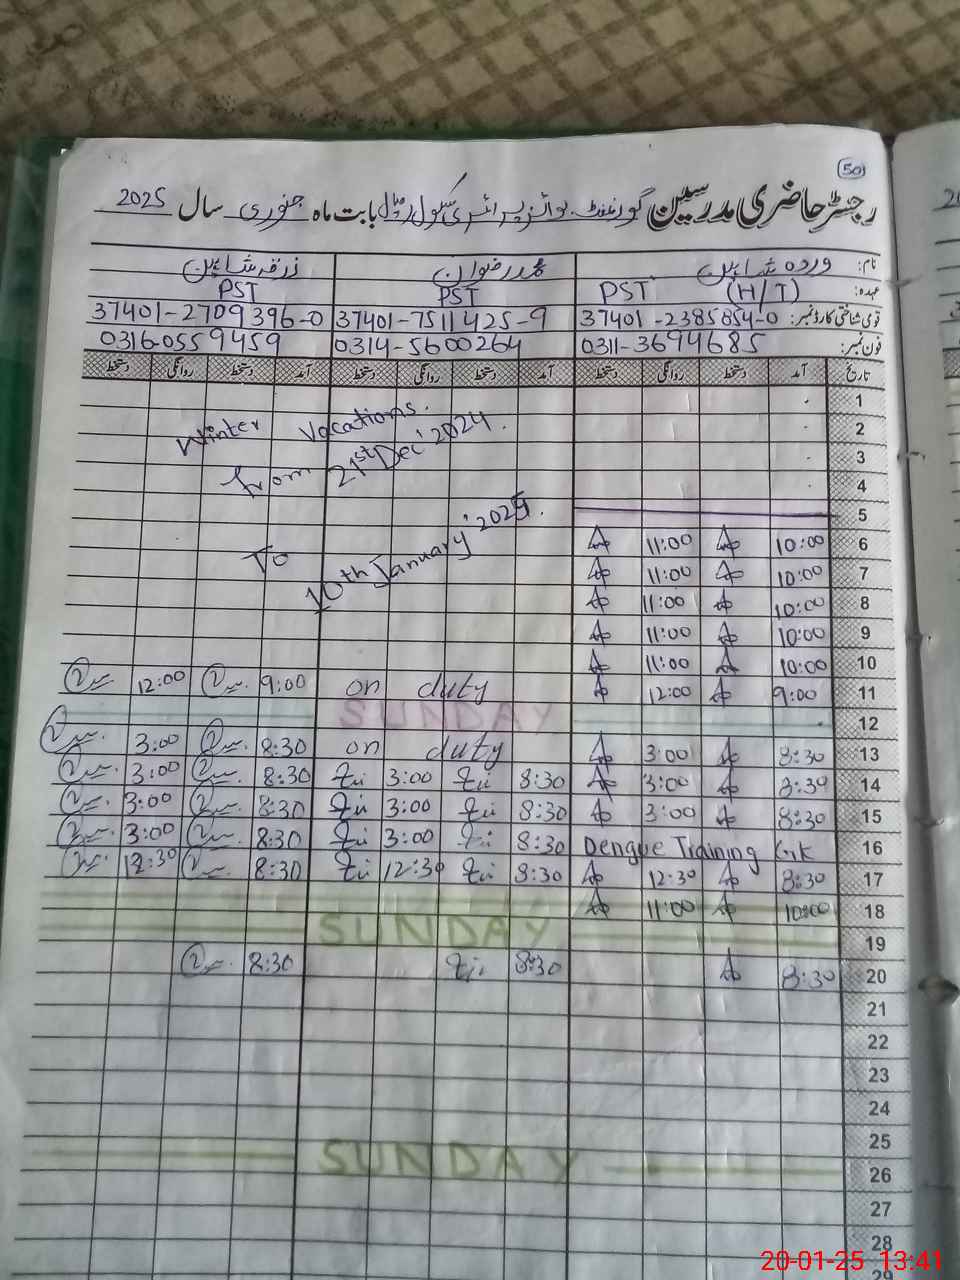 50
رجسٹر حاضری مدرسین گورنمنٹ بوائز پرائمری سکول بابت ماہ جنوری سال 2025
نام: وردہ شاہین محمد رضوان زرقہ شاہین
عہدہ: PST (H/T) PST PST
قومی شناختی کارڈ نمبر: 37401-2385854-0 37401-7511425-9 37401-2709396-0
فون نمبر: 0311-3694685 0314-5600264 0316-0559459
تاریخ آمد دستخط روانگی دستخط آمد دستخط روانگی دستخط آمد دستخط روانگی دستخط
1
2
3
4
5
Winter Vacations.
from 21st Dec' 2024.
To
10th January' 2025.
6 10:00 11:00
7 10:00 11:00
8 10:00 11:00
9 10:00 11:00
10 10:00 11:00
11 9:00 12:00 on duty 9:00 12:00
12 SUNDAY
13 8:30 3:00 on duty 8:30 3:00
14 8:30 3:00 8:30 3:00 8:30 3:00
15 8:30 3:00 8:30 3:00 8:30 3:00
16 Dengue Training 8:30 3:00 8:30 3:00
17 8:30 12:30 8:30 12:30 8:30 12:30
18 10:00 11:00
19 SUNDAY
20 8:30 8:30 8:30
21
22
23
24
25
26 SUNDAY
27
28
29
20-01-25 13:41